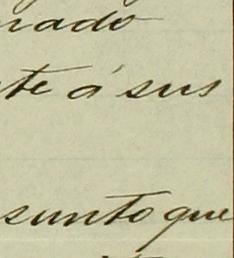 rado
te á sus
sunto que